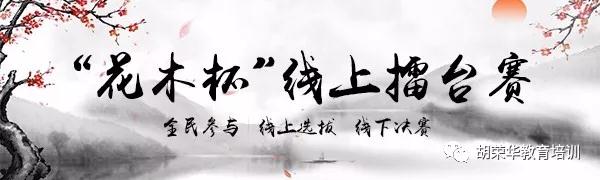 “花木杯”线上擂台赛
全民参与 线上选拔 线下决赛
胡荣华教育培训